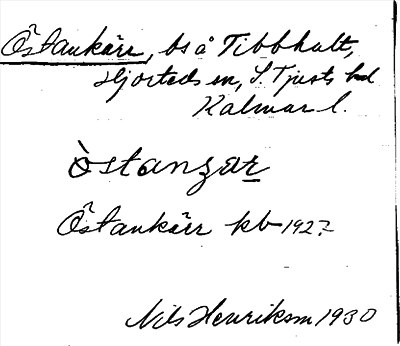 Östankärr, bs å Tibbhult,
Hjorteds sn, S. Tjusts hd
Kalmar l.
òstanʒar
Östankärr kb 1927
Nils Henrikson 1930